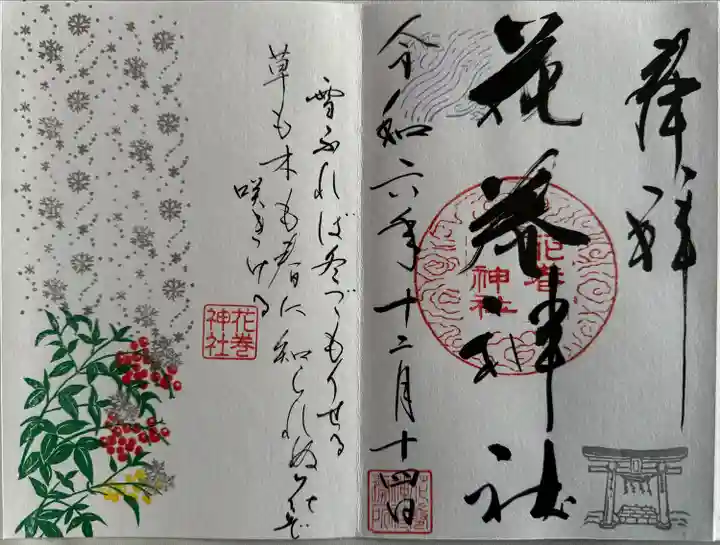 奉拝
花巻神社
花巻神社
令和六年十二月十四日
雪ふれば冬ごもりせる
草も木も春に知られぬ花ぞ
咲きける
花巻神社